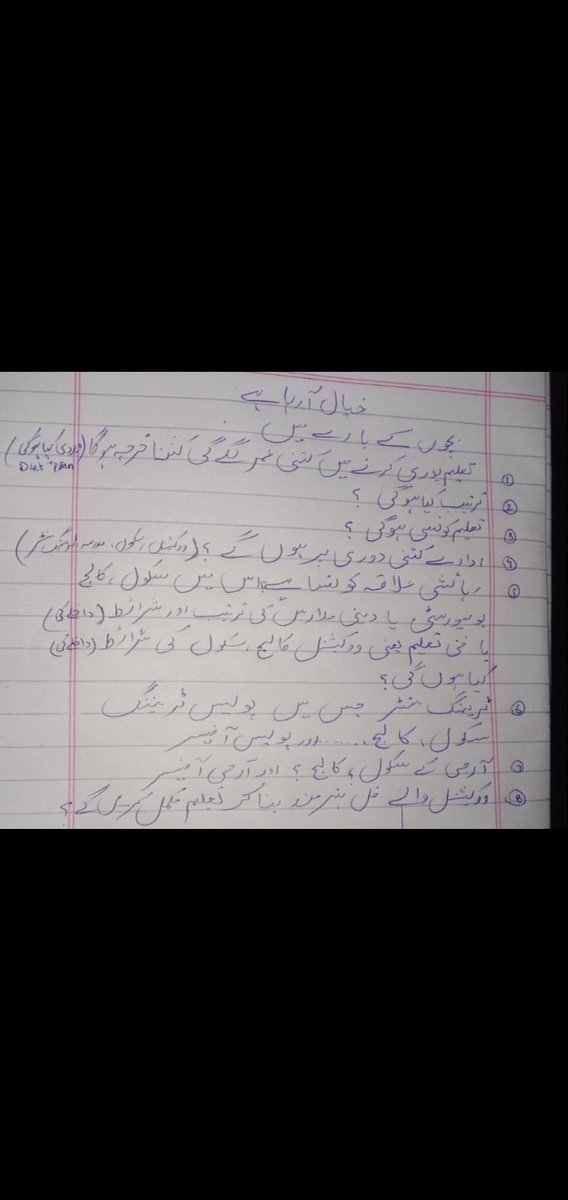 خیال آرہا ہے
بچوں کے بارے میں
① تعلیم پوری کرنے میں کتنی عمر لگے گی کتنا خرچہ ہوگا (وردی کیا ہوگی)
Diet plan
② ترتیب کیا ہوگی ؟
③ تعلیم کونسی ہوگی ؟
④ ادارے کتنی دوری پر ہوں گے ؟ (ووکیشنل، سکول، مدرسہ، ٹریننگ سنٹر)
⑤ رہائشی علاقہ کونسا ہے؟ اس میں سکول، کالج
یونیورسٹی یا دینی مدارس کی ترتیب اور شرائط (داخلے کی)
یا فنی تعلیم یعنی ووکیشنل کالج، سکول کی شرائط (داخلے کی)
کیا ہوں گی؟
⑥ ٹریننگ سنٹر جس میں پولیس ٹریننگ
سکول، کالج، ...... اور پولیس آفیسر
⑦ آرمی کے سکول، کالج ؟ اور آرمی آفیسر
⑧ ووکیشنل والے فل ہنر مند بنا کر تعلیم مکمل کریں گے ؟